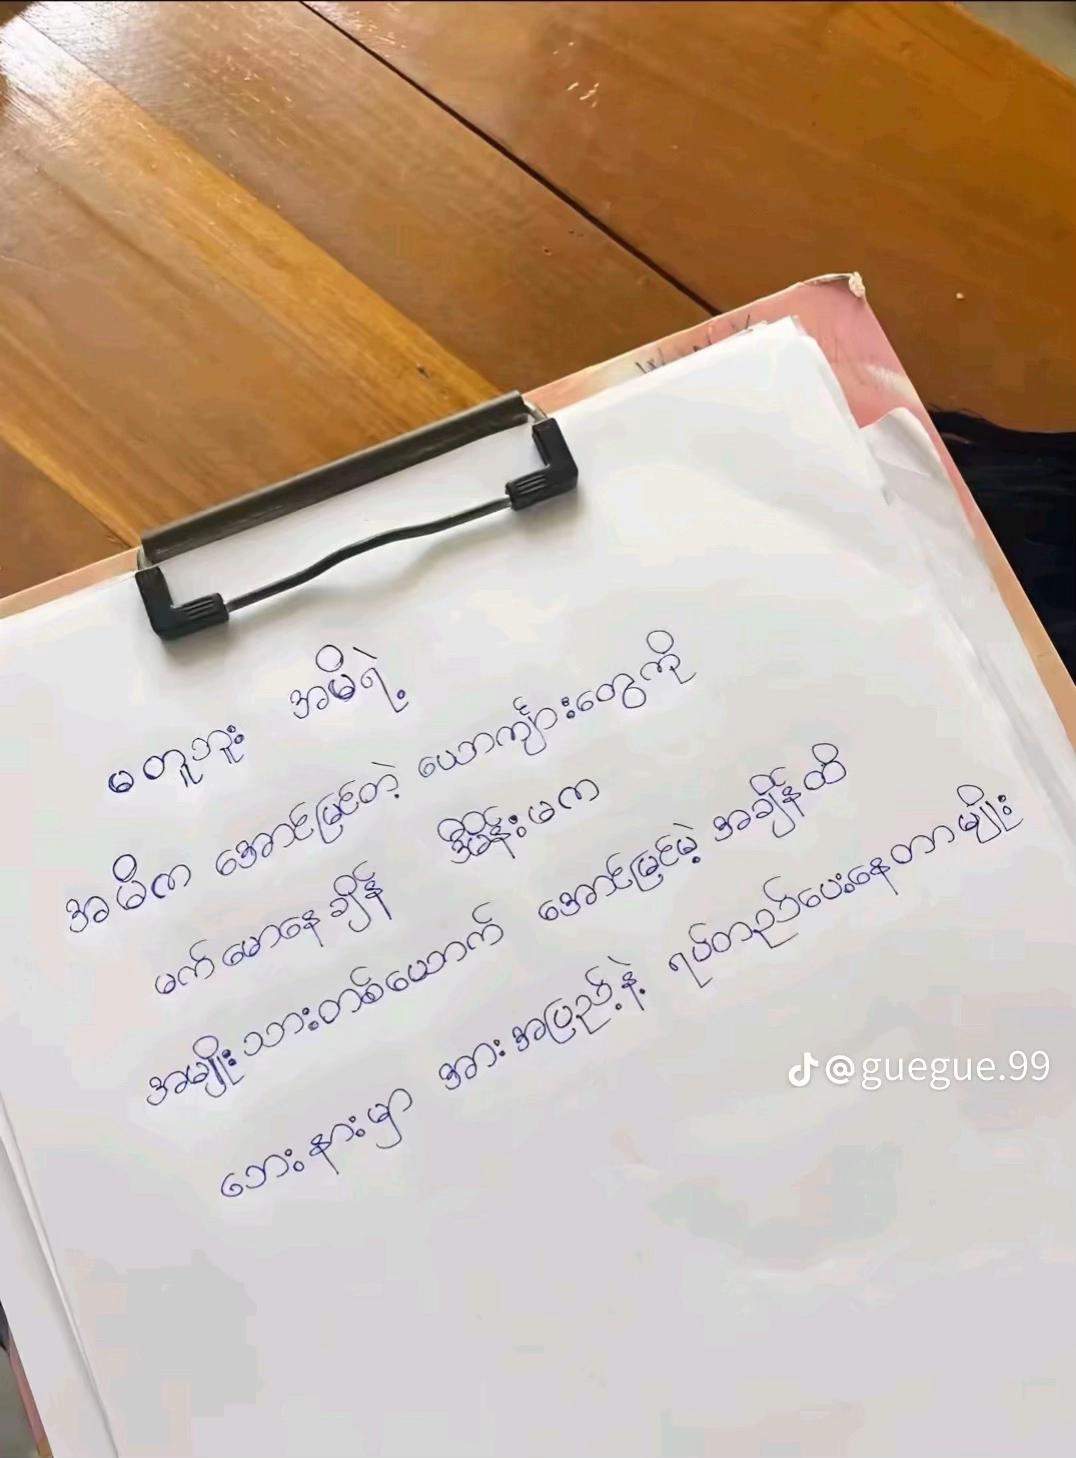 မတူဘူး အမိရဲ့
အမိက အောင်မြင်တဲ့ ယောကျာ်းတွေကို
မက်မောနေချိန် ဒီမိန်းမက
အမျိုးသားတစ်ယောက် အောင်မြင်မဲ့ အချိန်ထိ
ဘေးနားမှာ အားအပြည့်နဲ့ ရပ်တည်ပေးနေတာမျိုး
@guegue.99